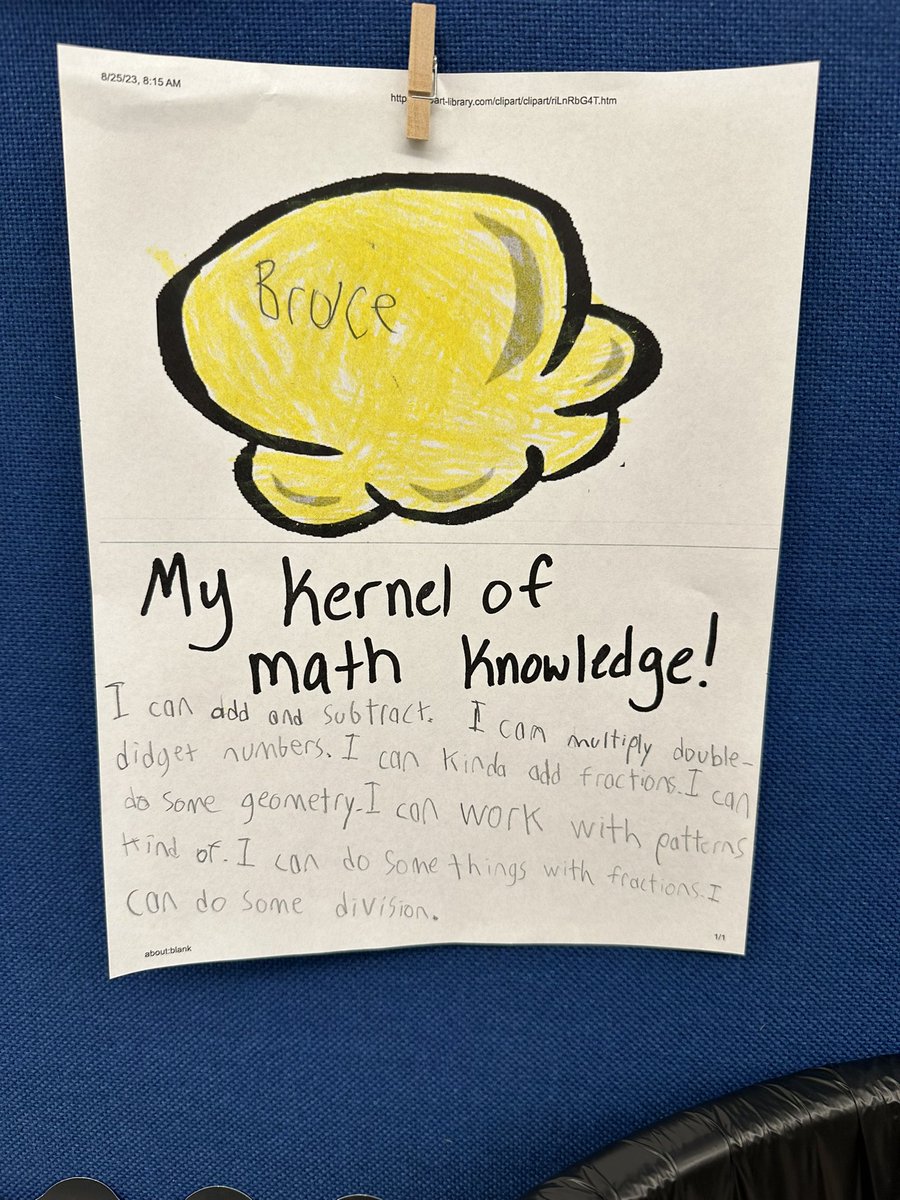 8/25/23, 8:15 AM
http art-library.com/clipart/clipart/riLnRbG4T.htm
Bruce
My Kernel of
math Knowledge!
I can add and subtract. I can multiply double-
didget numbers. I can Kinda add fractions. I can
do some geometry. I can work with patterns
kind of. I can do some things with fractions. I
can do some division.
about:blank
1/1